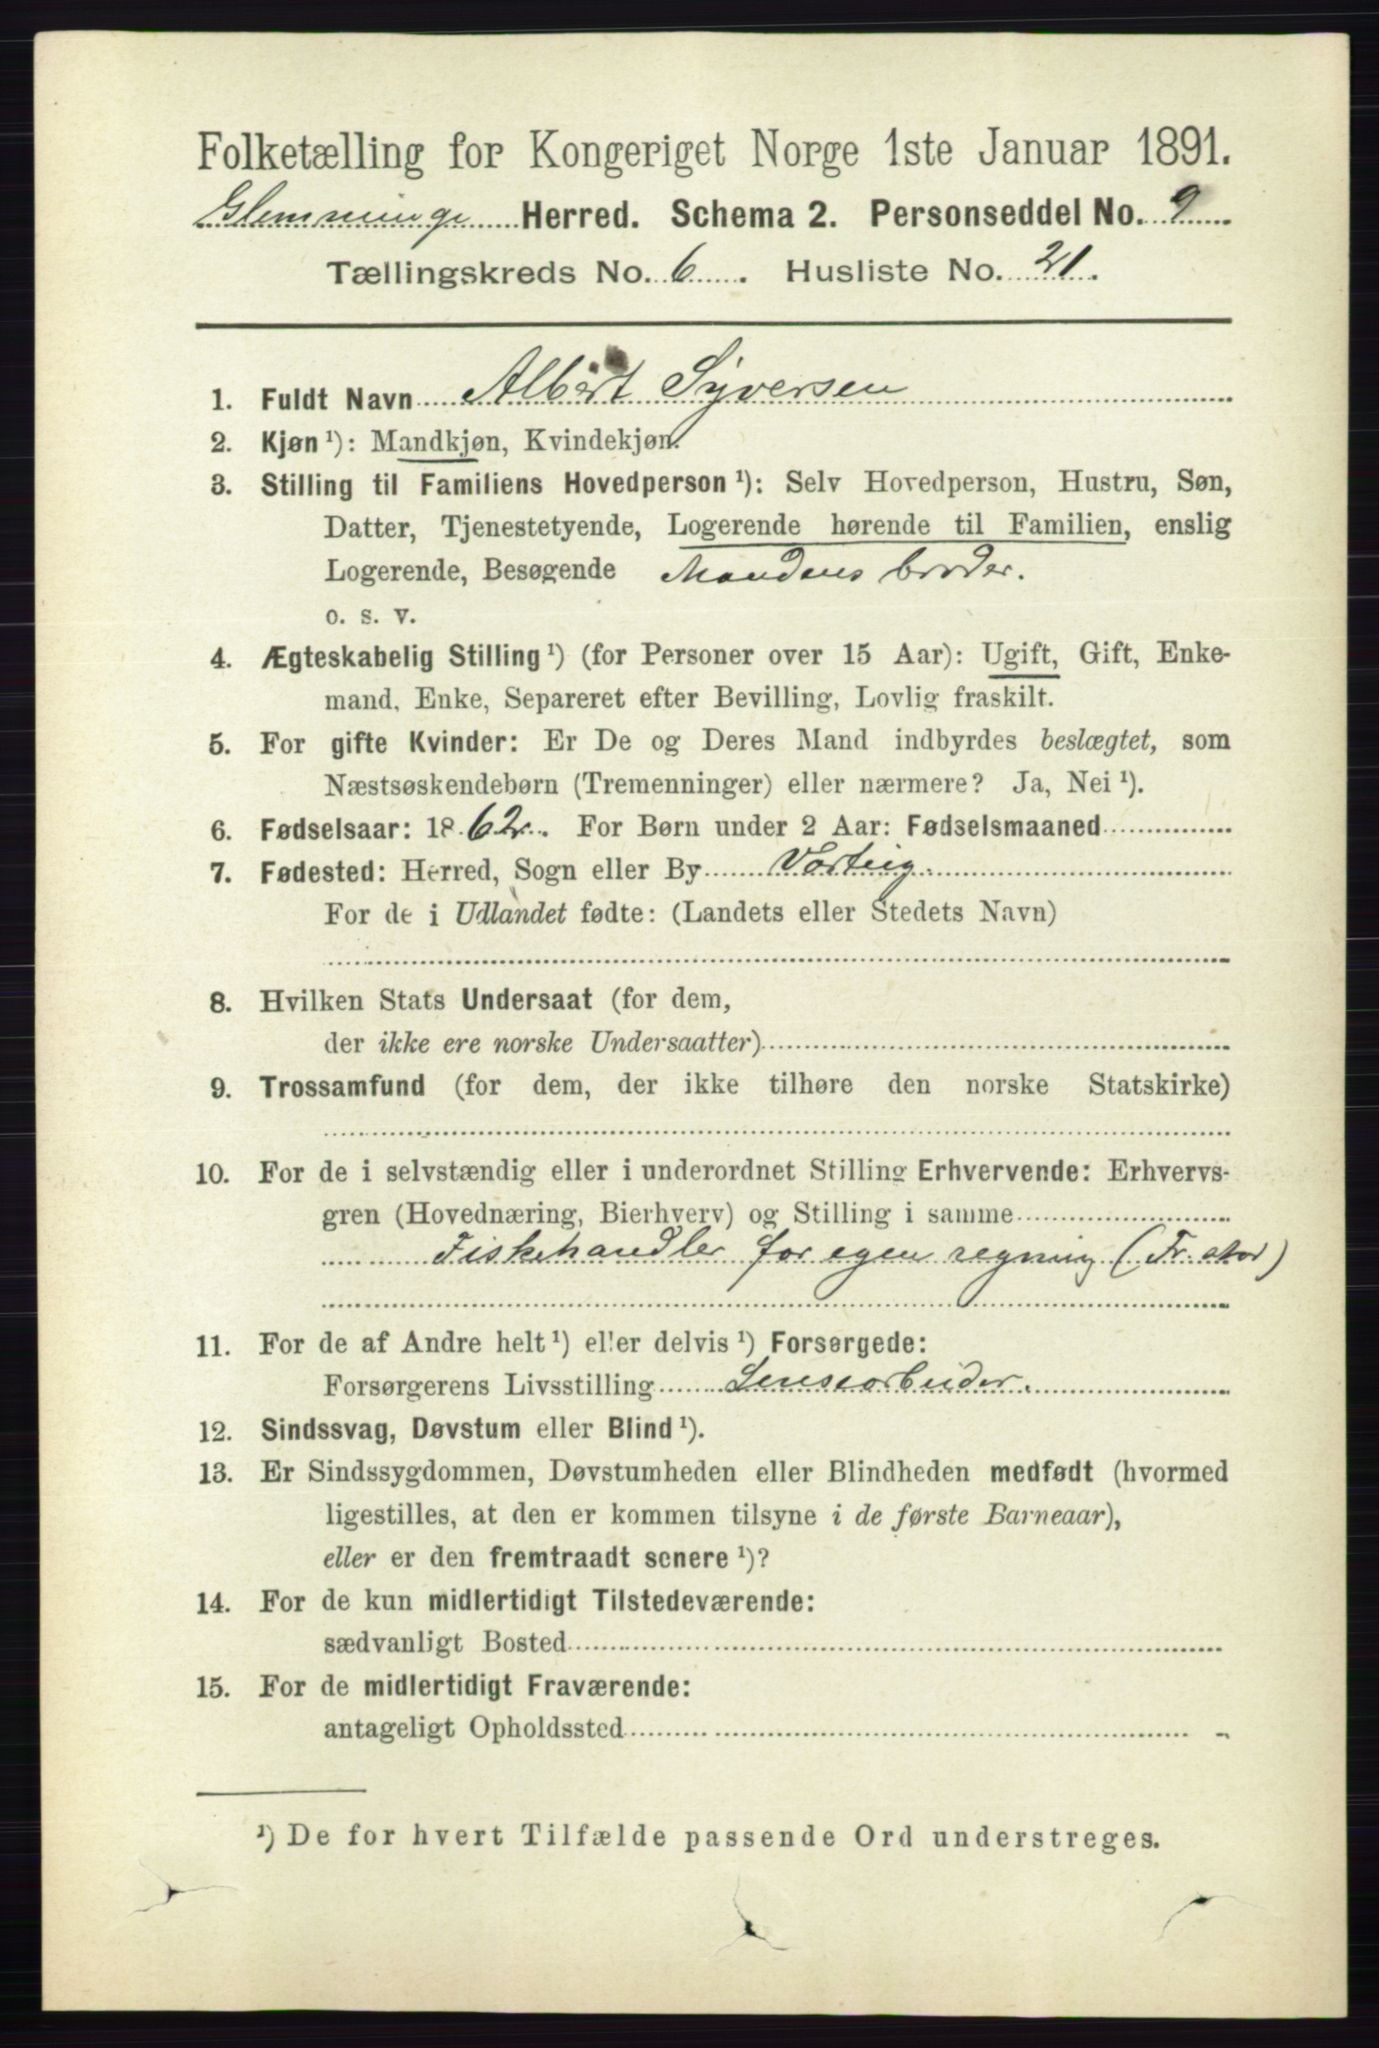 Folketælling for Kongeriget Norge 1ste Januar 1891.
Glemminge Herred. Schema 2. Personseddel No. 9
Tællingskreds No. 6. Husliste No. 21.
1. Fuldt Navn Albert Syversen
2. Kjøn ¹): Mandkjøn, Kvindekjøn.
3. Stilling til Familiens Hovedperson ¹): Selv Hovedperson, Hustru, Søn,
Datter, Tjenestetyende, Logerende hørende til Familien, enslig
Logerende, Besøgende Mandens broder.
o. s. v.
4. Ægteskabelig Stilling ¹) (for Personer over 15 Aar): Ugift, Gift, Enke-
mand, Enke, Separeret efter Bevilling, Lovlig fraskilt.
5. For gifte Kvinder: Er De og Deres Mand indbyrdes beslægtet, som
Næstsøskendebørn (Tremenninger) eller nærmere? Ja, Nei ¹).
6. Fødselsaar: 1862. For Børn under 2 Aar: Fødselsmaaned
7. Fødested: Herred, Sogn eller By Varteig.
For de i Udlandet fødte: (Landets eller Stedets Navn)
8. Hvilken Stats Undersaat (for dem,
der ikke ere norske Undersaatter)
9. Trossamfund (for dem, der ikke tilhøre den norske Statskirke)
10. For de i selvstændig eller i underordnet Stilling Erhvervende: Erhvervs-
gren (Hovednæring, Bierhverv) og Stilling i samme
Fiskehandler for egen regning (Fr. stad)
11. For de af Andre helt ¹) eller delvis ¹) Forsørgede:
Forsørgerens Livsstilling Lensearbeider.
12. Sindssvag, Døvstum eller Blind ¹).
13. Er Sindssygdommen, Døvstumheden eller Blindheden medfødt (hvormed
ligestilles, at den er kommen tilsyne i de første Barneaar),
eller er den fremtraadt senere ¹)?
14. For de kun midlertidigt Tilstedeværende:
sædvanligt Bosted
15. For de midlertidigt Fraværende:
antageligt Opholdssted
¹) De for hvert Tilfælde passende Ord understreges.